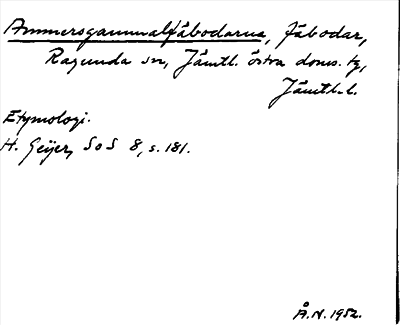 Ammersgammalfäbodarna, Fäbodar,
Ragunda sn, Jämtl. östra doms. tg,
Jämtl. l.
Etymologi.
H. Geijer, SoS 8, s. 181.
Å.N. 1952.